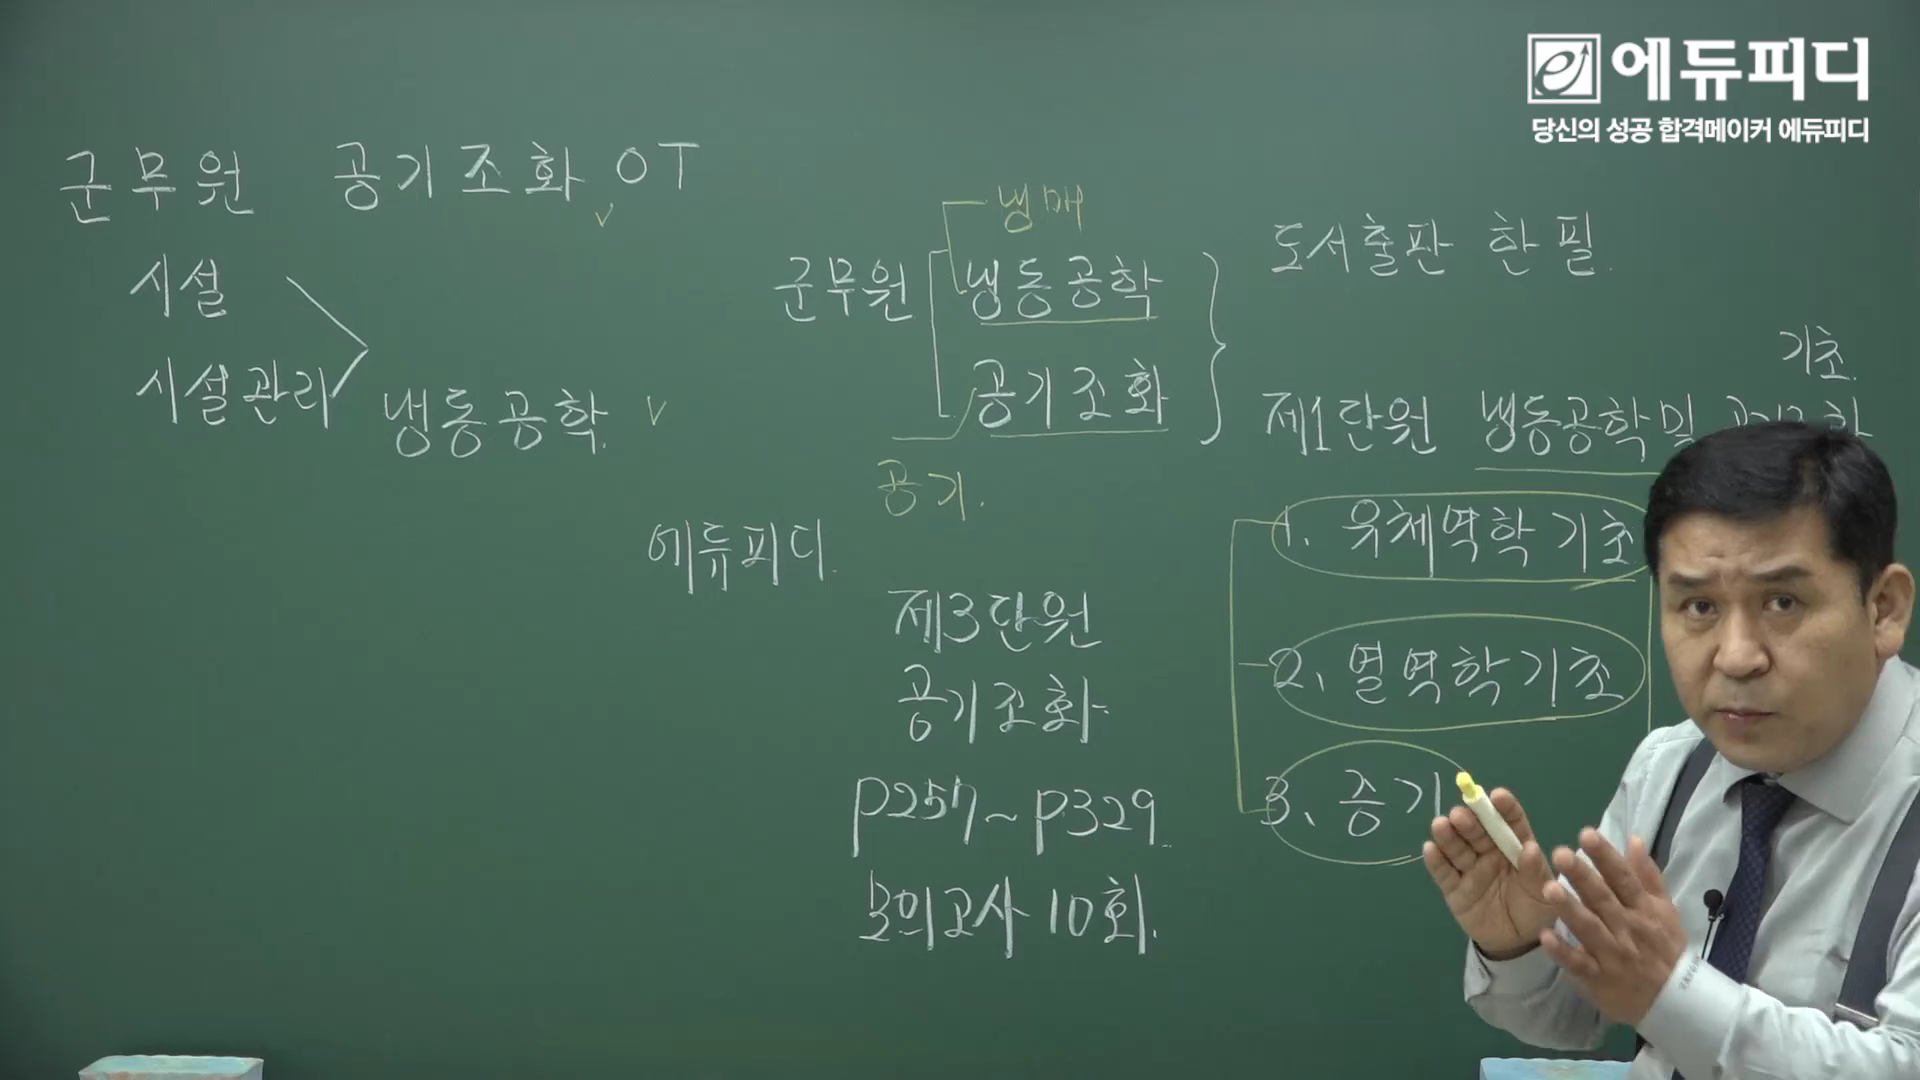 에듀피디
당신의 성공 합격메이커 에듀피디
군무원 공기조화 OT
시설
시설관리
냉동공학.
냉매
군무원
냉동공학
공기조화
공기.
도서출판 한필.
기초.
제1단원 냉동공학 및
1. 유체역학 기초
2. 열역학 기초
3. 증기
에듀피디.
제3단원
공기조화
P257~P329.
모의고사 10회.